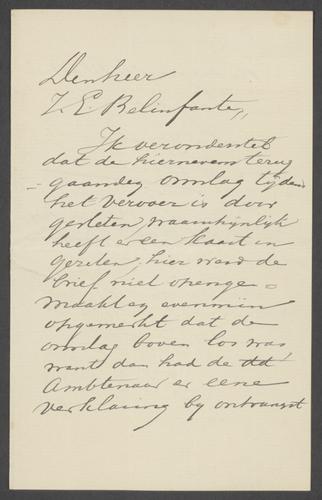 Denheer
I. E. Belinfante,,
Ik veronderstel
dat de hiernevens terug
gaandeg omslag tijdens
het vervoer is door
gesleten, waarschijnlijk
heeft er een kaart in
gezeten, hier werd de
brief niet openge =
maakt en evenmin
opgemerkt dat de
omslag boven los was
want dan had de dd!
Ambtenaar er eene
verklaring by ontvangst